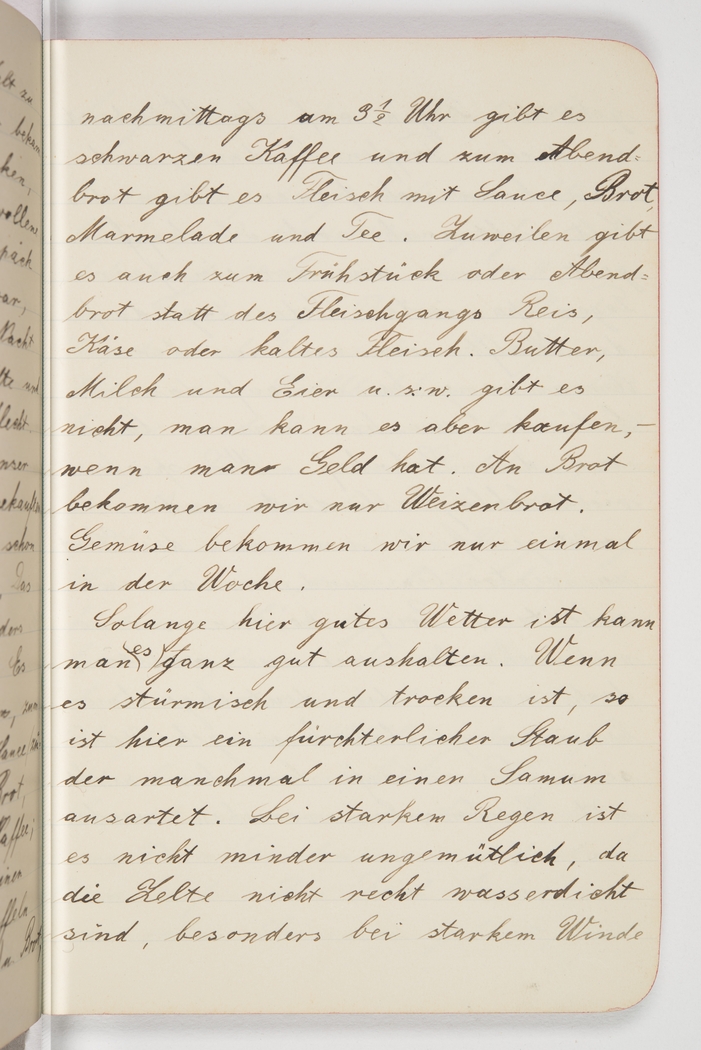 nachmittags am 3½ Uhr gibt es
schwarzen Kaffee und zum Abend=
brot gibt es Fleisch mit Sauce, Brot,
Marmelade und Tee. Zuweilen gibt
es auch zum Frühstück oder Abend=
brot statt des Fleischgangs Reis,
Käse oder kaltes Fleisch. Butter,
Milch und Eier u.s.w. gibt es
nicht, man kann es aber kaufen,–
wenn man Geld hat. An Brot
bekommen wir nur Weizenbrot.
Gemüse bekommen wir nur einmal
in der Woche.
Solange hier gutes Wetter ist kann
man es ganz gut aushalten. Wenn
es stürmisch und trocken ist, so
ist hier ein fürchterlicher Staub
der manchmal in einen Samum
ausartet. Bei starkem Regen ist
es nicht minder ungemütlich, da
die Zelte nicht recht wasserdicht
sind, besonders bei starkem Winde